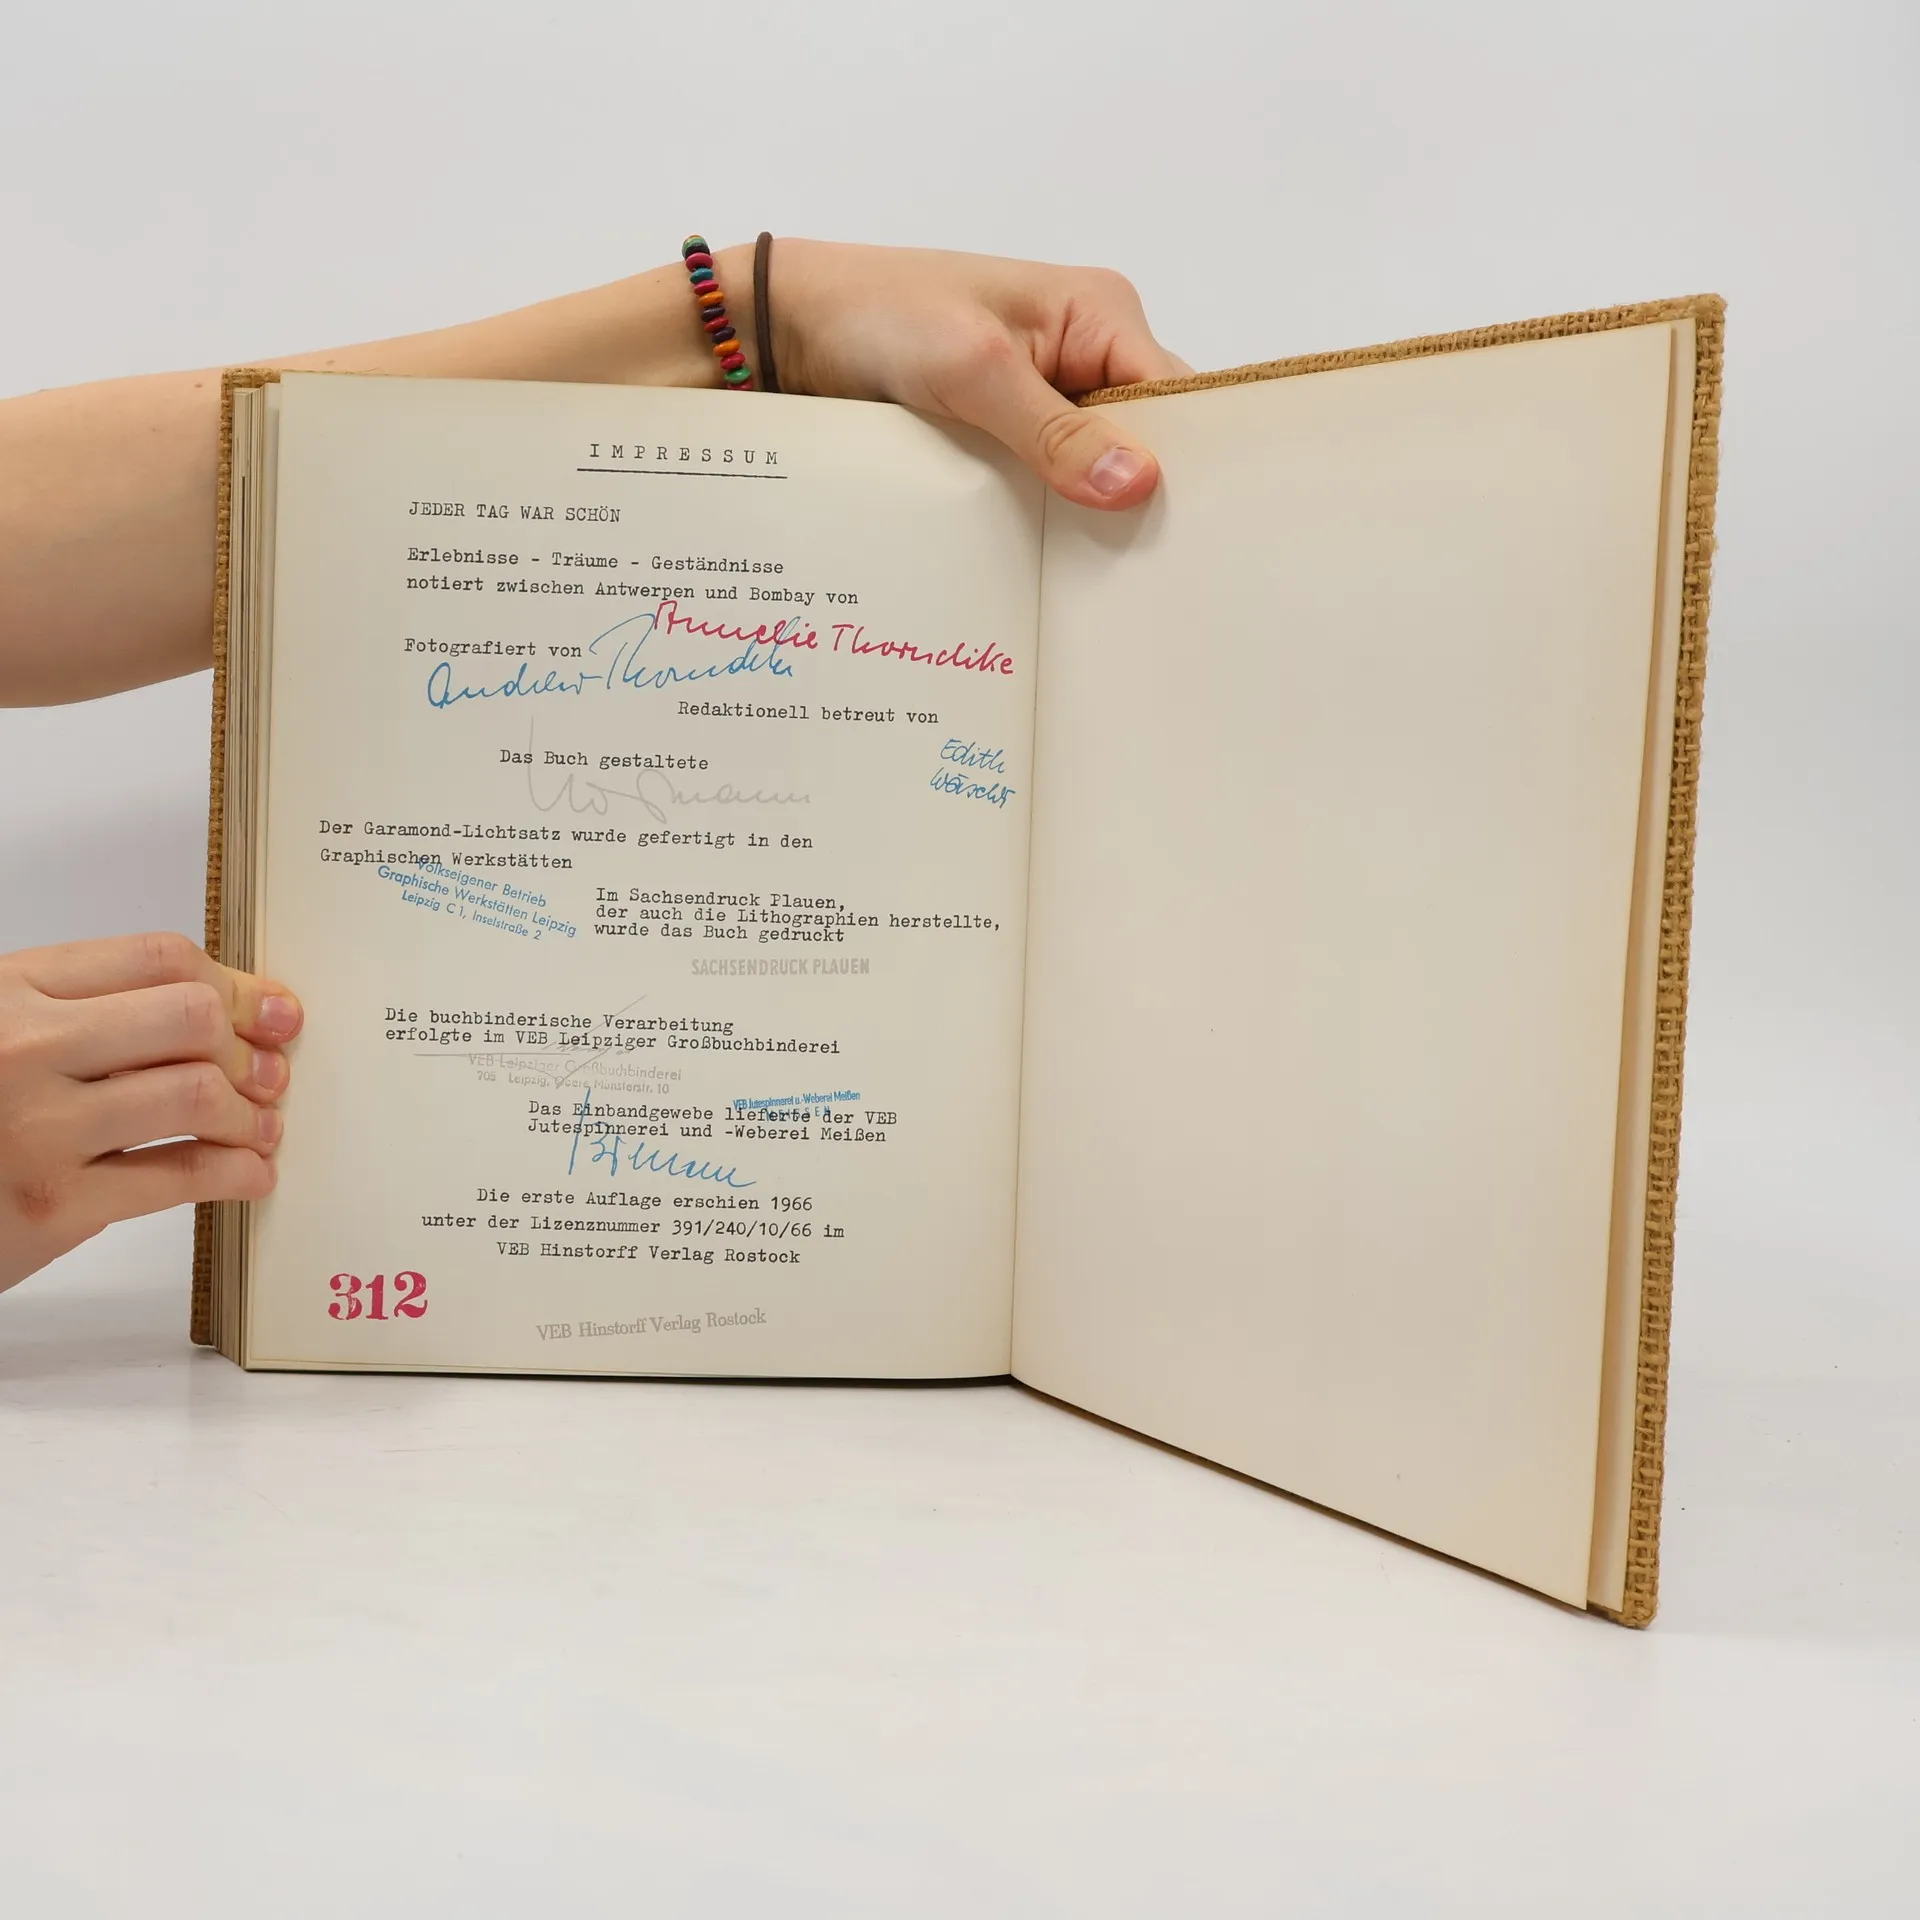 IMPRESSUM
JEDER TAG WAR SCHÖN
Erlebnisse - Träume - Geständnisse
notiert zwischen Antwerpen und Bombay von
Annelie Thorndike
Fotografiert von
Andrew Thorndike
Redaktionell betreut von
Edith
Das Buch gestaltete
Der Garamond-Lichtsatz wurde gefertigt in den
Graphischen Werkstätten
Volkseigener Betrieb
Graphische Werkstätten Leipzig
Leipzig C 1, Inselstraße 2
Im Sachsendruck Plauen,
der auch die Lithographien herstellte,
wurde das Buch gedruckt
SACHSENDRUCK PLAUEN
Die buchbinderische Verarbeitung
erfolgte im VEB Leipziger Großbuchbinderei
VEB Leipziger Großbuchbinderei
705 Leipzig, Obere Münsterstr. 10
VEB Jutespinnerei u.-Weberei Meißen
MEISSEN
Das Einbandgewebe lieferte der VEB
Jutespinnerei und -Weberei Meißen
Die erste Auflage erschien 1966
unter der Lizenznummer 391/240/10/66 im
VEB Hinstorff Verlag Rostock
312
VEB Hinstorff Verlag Rostock